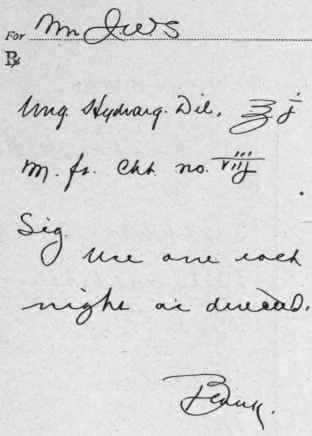 For Mr Ives
℞
Ung. Hydrarg. Dil. ℥ j
M. ft. Cht. no. viij
Sig
Use one each
night as directed.